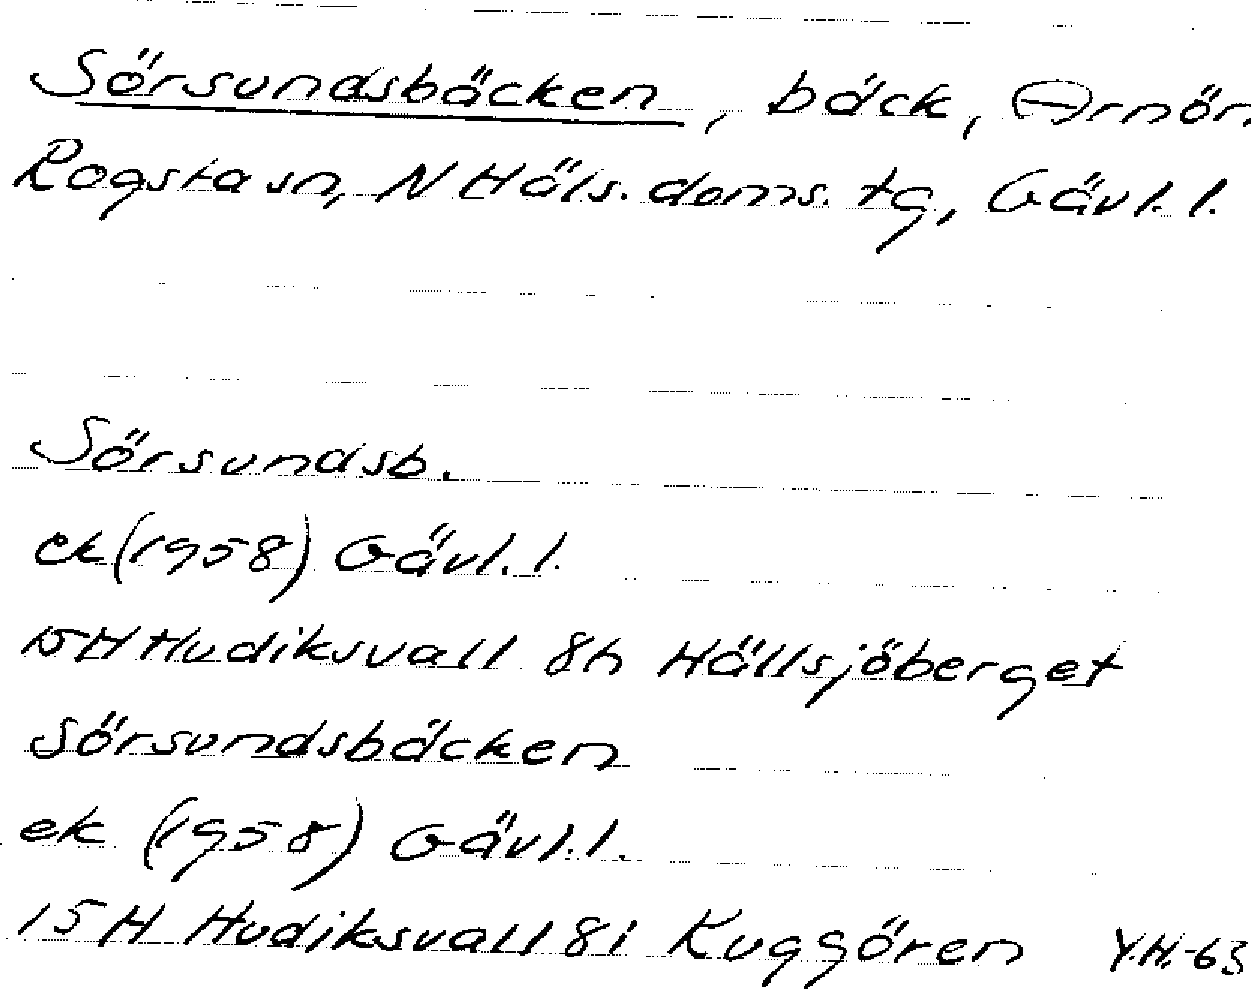 Sörsundsbäcken, bäck, Arnön
Rogsta sn, N Häls. doms. tg, Gävl. l.
Sörsundsb.
ek (1958) Gävl. l.
15H Hudiksvall 8h Hällsjöberget
Sörsundsbäcken
ek (1958) Gävl. l.
15H Hudiksvall 8i Kuggören Y.H.-63